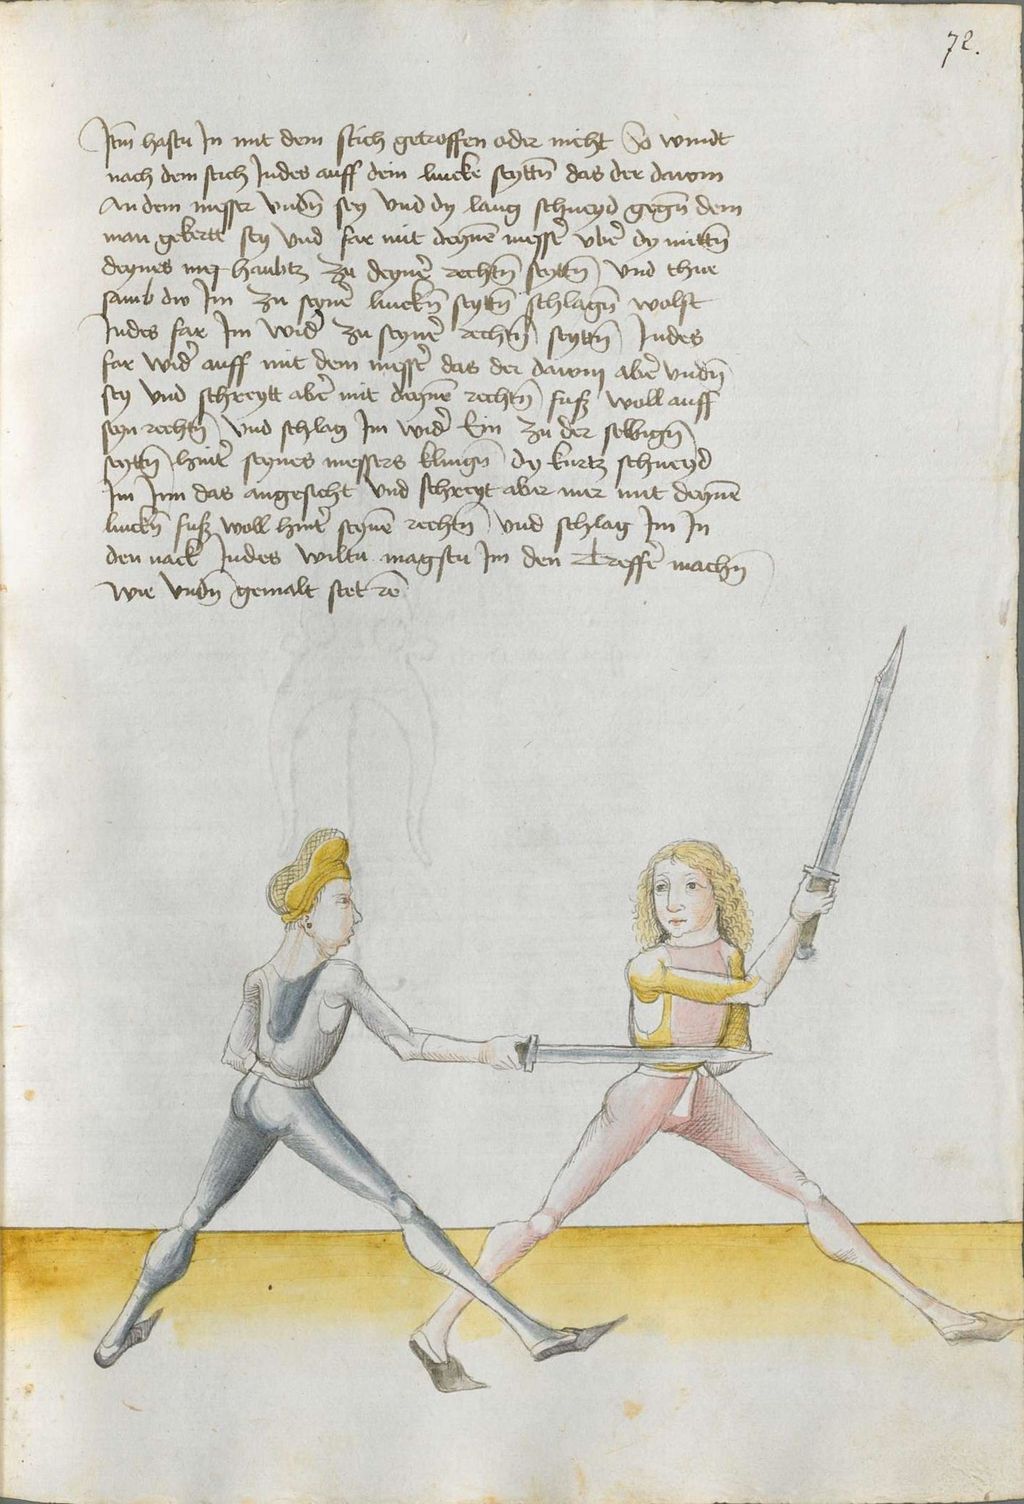 72.
Itm̄ hastu In mit dem stich getroffen oder nicht So windt
nach dem stich Indes auff dein lincke seyttn̄ das der dawm
An dem messer vndn̄ sey vnd dy lang schneyd gegn̄ dem
man gekertt sey vnd far mit deynē messer̄ vber̄ dy mittn̄
deynes haubtz zu deyner̄ rechtn̄ seyttn̄ vnd thue
samb dw Im zu seyner̄ linckn̄ seyttn̄ schlagn̄ wolst
Indes far Im wider̄ zu seyner̄ rechtn̄ seyttn̄ Indes
far wider̄ auff mit dem messer̄ das der dawm aber̄ vndn̄
sey vnd schreytt aber̄ mit deynē rechtn̄ fuß woll auff
seyn rechtn̄ vnd schlag Im wider̄ Ein zu der selbign̄
seyttn̄ hinter̄ seynes messers klingn̄ dy kurtz schneyd
Im Inn das angesicht vnd schreyt aber mer mit deynē
linckn̄ fuß woll hinter̄ seynē rechtn̄ vnd schlag Im In
den nack Indes wiltu magstu Im den Treffer̄ machn̄
wie vndn̄ gemalt stet rē